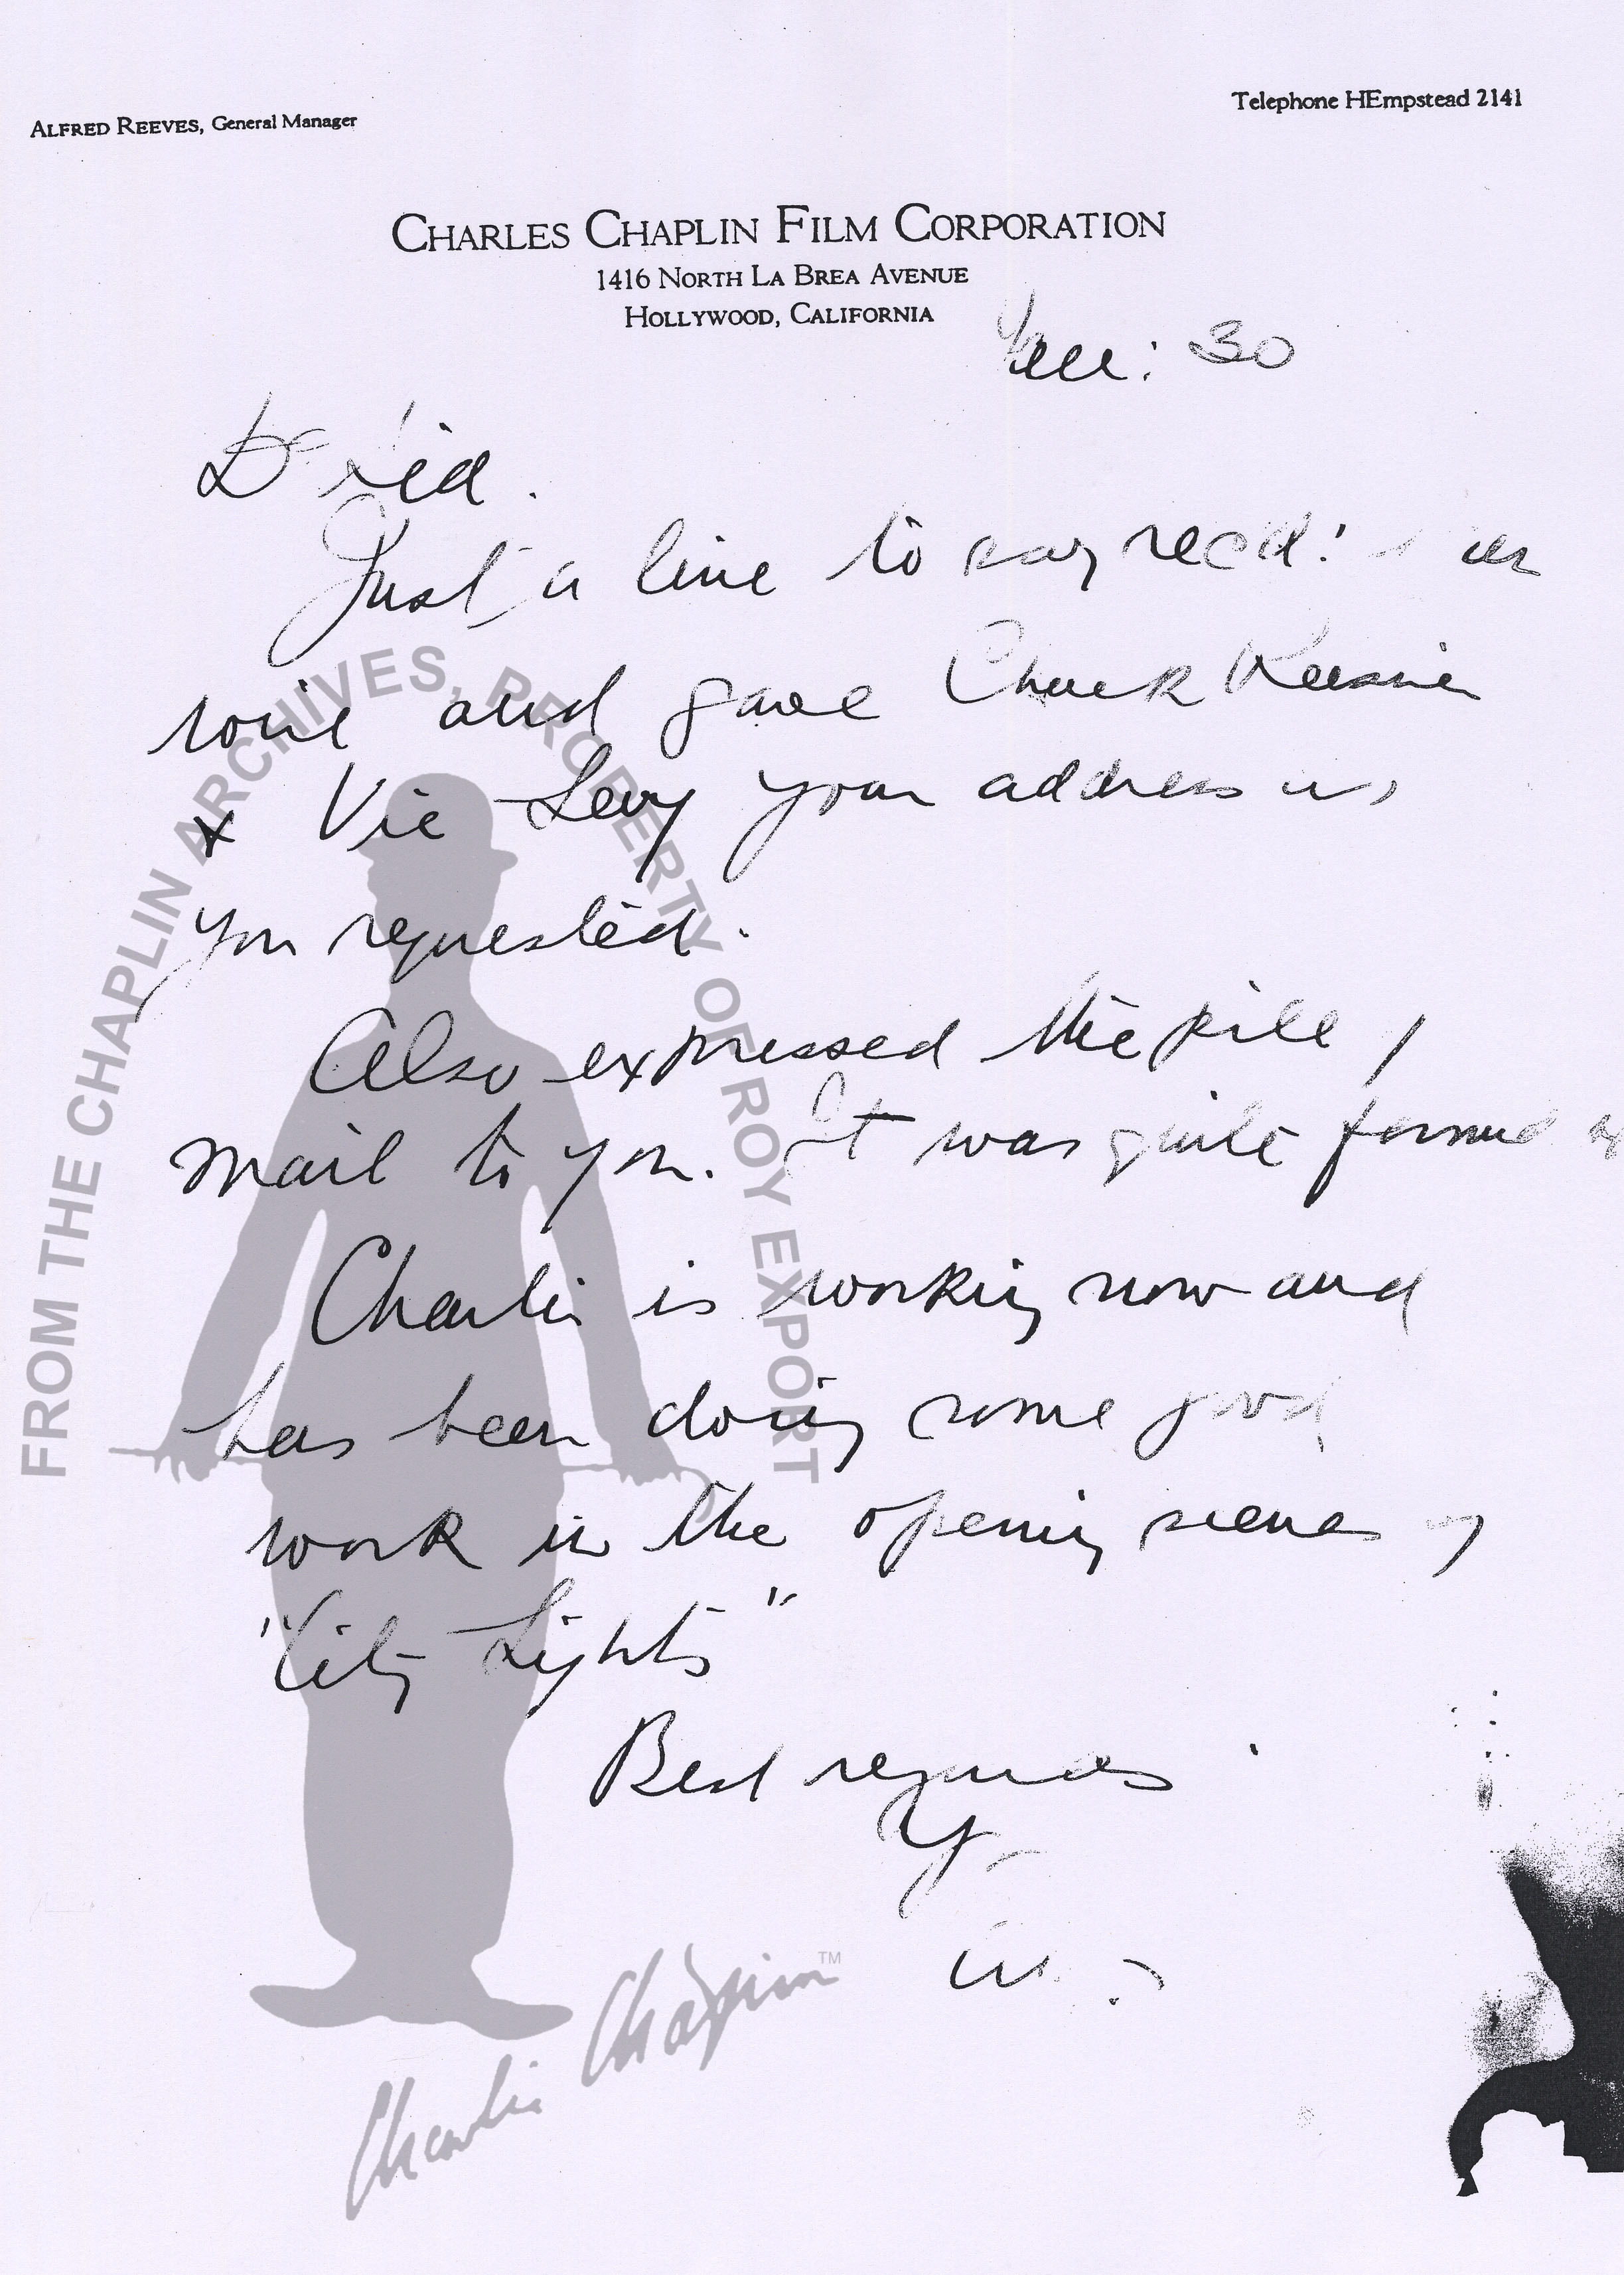 ALFRED REEVES, General Manager
Telephone HEmpstead 2141
CHARLES CHAPLIN FILM CORPORATION
1416 NORTH LA BREA AVENUE
HOLLYWOOD, CALIFORNIA
30
Just a line to say recd:
wire and gave Chuck
+ Vic Levy your address as
you requested.
Also expressed the pile of
mail to you. It was quite
Charlie is working now and
has been doing some good
work in the opening scenes of
"City Lights"
Best regards
FROM THE CHAPLIN ARCHIVES, PROPERTY OF ROY EXPORT
Charlie Chaplin™